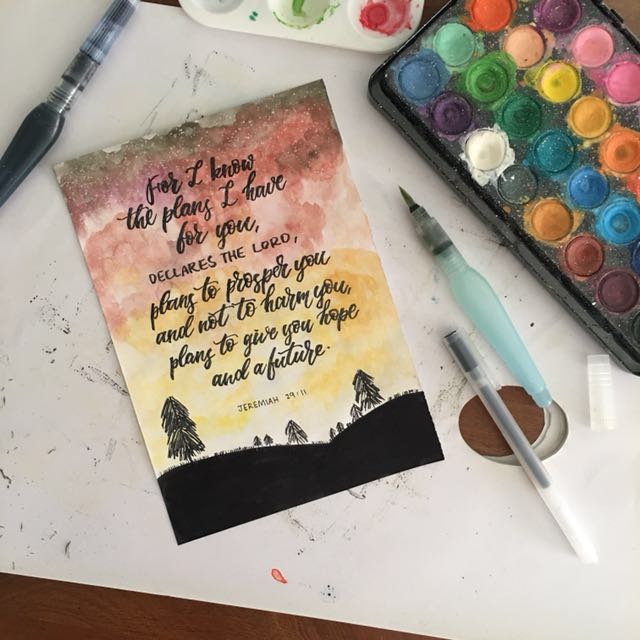 For I know
the plans I have
for you,
DECLARES THE LORD,
plans to prosper you
and not to harm you,
plans to give you hope
and a future.
JEREMIAH 29:11